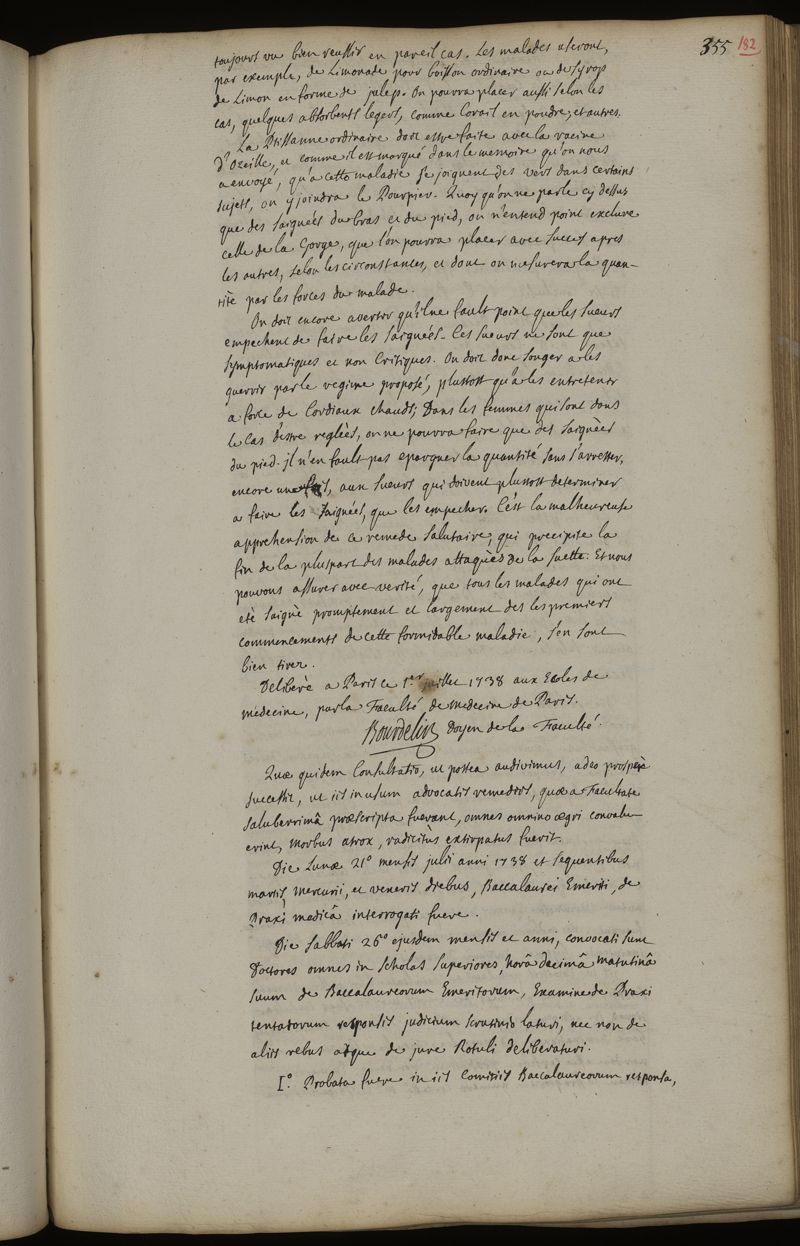 355 182
toujours vu bien reussir en pareil cas. Les malades useront,
par exemple, de Limonade pour boisson ordinaire ou de syrop
de Limon en forme de julep. On pourra placer aussi selon les
cas, quelques absorbents legers, comme Corail en poudre, et autres.
La Ptissanne ordinaire doit estre faite avec la racine
d'Ozeille, et comme il est marqué dans le memoire qu'on nous
a envoyé, qu'a cette maladie se joignent des vers dans certains
sujets, on y joindra le Pourpier. Quoy qu'on ne parle cy dessus
que des saignées du bras et du pied, on n'entend point exclure
celle de la Gorge, que l'on pourra placer avec succes apres
les autres, selon les circonstances, et dont on mesurera la quan-
tité par les forces du malade.
On doit encore avertir qu'il ne fault point que les sueurs
empechent de faire les saignées. Ces sueurs ne sont que
symptomatiques et non Critiques. On doit donc songer a les
guerir par le regime proposé, plustost qu'a les entretenir
a force de Cordiaux chauds; Dans les femmes qui sont dans
le cas d'estre reglées, on ne pourra faire que des saignées
du pied. jl n'en fault pas epargner la quantité sans s'arrester,
encore une fois, aux sueurs qui doivent plustost determiner
a faire les saignées, que les empecher. C'est la malheureuse
apprehension de ce remede salutaire, qui precipite la
fin de la pluspart des malades attaqués de la suette. Et nous
pouvons assurer avec verité, que tous les malades qui ont
eté saigné promptement et largement des les premiers
commencements de cette formidable maladie, s'en sont
bien tirer.
Deliberé a Paris ce 1er juillet 1738 aux Ecoles de
medecine, par la Faculté de medecine de Paris.
Bourdelin Doyen de la Faculté.
Quæ quidem Consultatio, ut postea audivimus, adeo prosperè
successit, ut iis in usum advocatis remediis, quæ a Facultate
saluberrimâ præscripta fuerant, omnes omnino ægri convalu-
erint, morbus atrox, radicitùs extirpatus fuerit.
Die Lunæ 21º mensis julii anni 1738 et sequentibus
martis, mercurii, et veneris diebus, Baccalaurei Emeriti, de
Praxi medicâ interrogati fuere.
Die sabbati 26º ejusdem mensis et anni, convocati sunt
Doctores omnes in scholas superiores, horâ decimâ matutinâ
suum de Baccalaureorum Emeritorum, Examine de Praxi
tentatorum responsis judicium scrutinio laturi, nec non de
aliis rebus atque de jure Rotuli deliberaturi.
Iº. Probata fuere in iis Comitiis Baccalaureorum responsa,